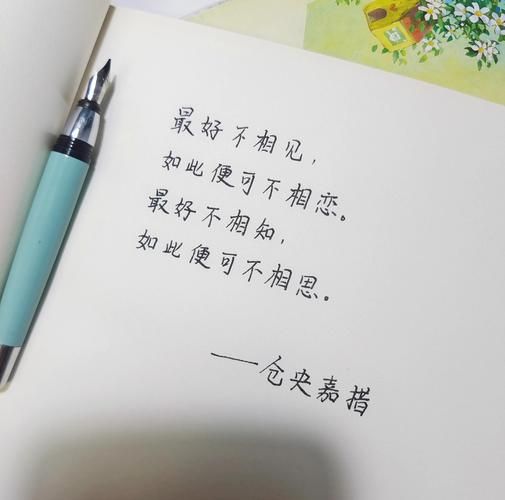 最好不相见，
如此便可不相恋。
最好不相知，
如此便可不相思。
——仓央嘉措